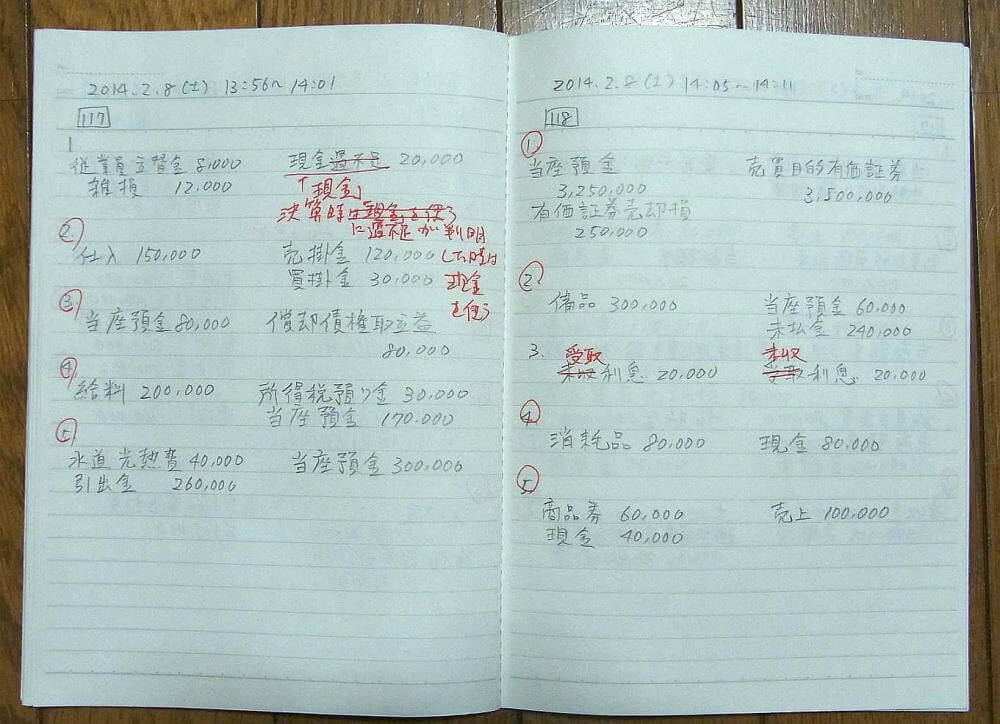 2014.2.8(土) 13:56~14:01
117
1
従業員立替金 8,000 現金過不足 20,000
雑損 12,000
「現金」
決算時は「現金」を使う
に過不足が判明
した時は
現金
を使う
2
仕入 150,000 売掛金 120,000
買掛金 30,000
3
当座預金 80,000 償却債権取立益
80,000
4
給料 200,000 所得税預り金 30,000
当座預金 170,000
5
水道光熱費 40,000 当座預金 300,000
引出金 260,000
2014.2.8(土) 14:05~14:11
118
1
当座預金 売買目的有価証券
3,250,000 3,500,000
有価証券売却損
250,000
2
備品 300,000 当座預金 60,000
未払金 240,000
受取 未収
3. 未収利息 20,000 受取利息 20,000
4
消耗品 80,000 現金 80,000
5
商品券 60,000 売上 100,000
現金 40,000